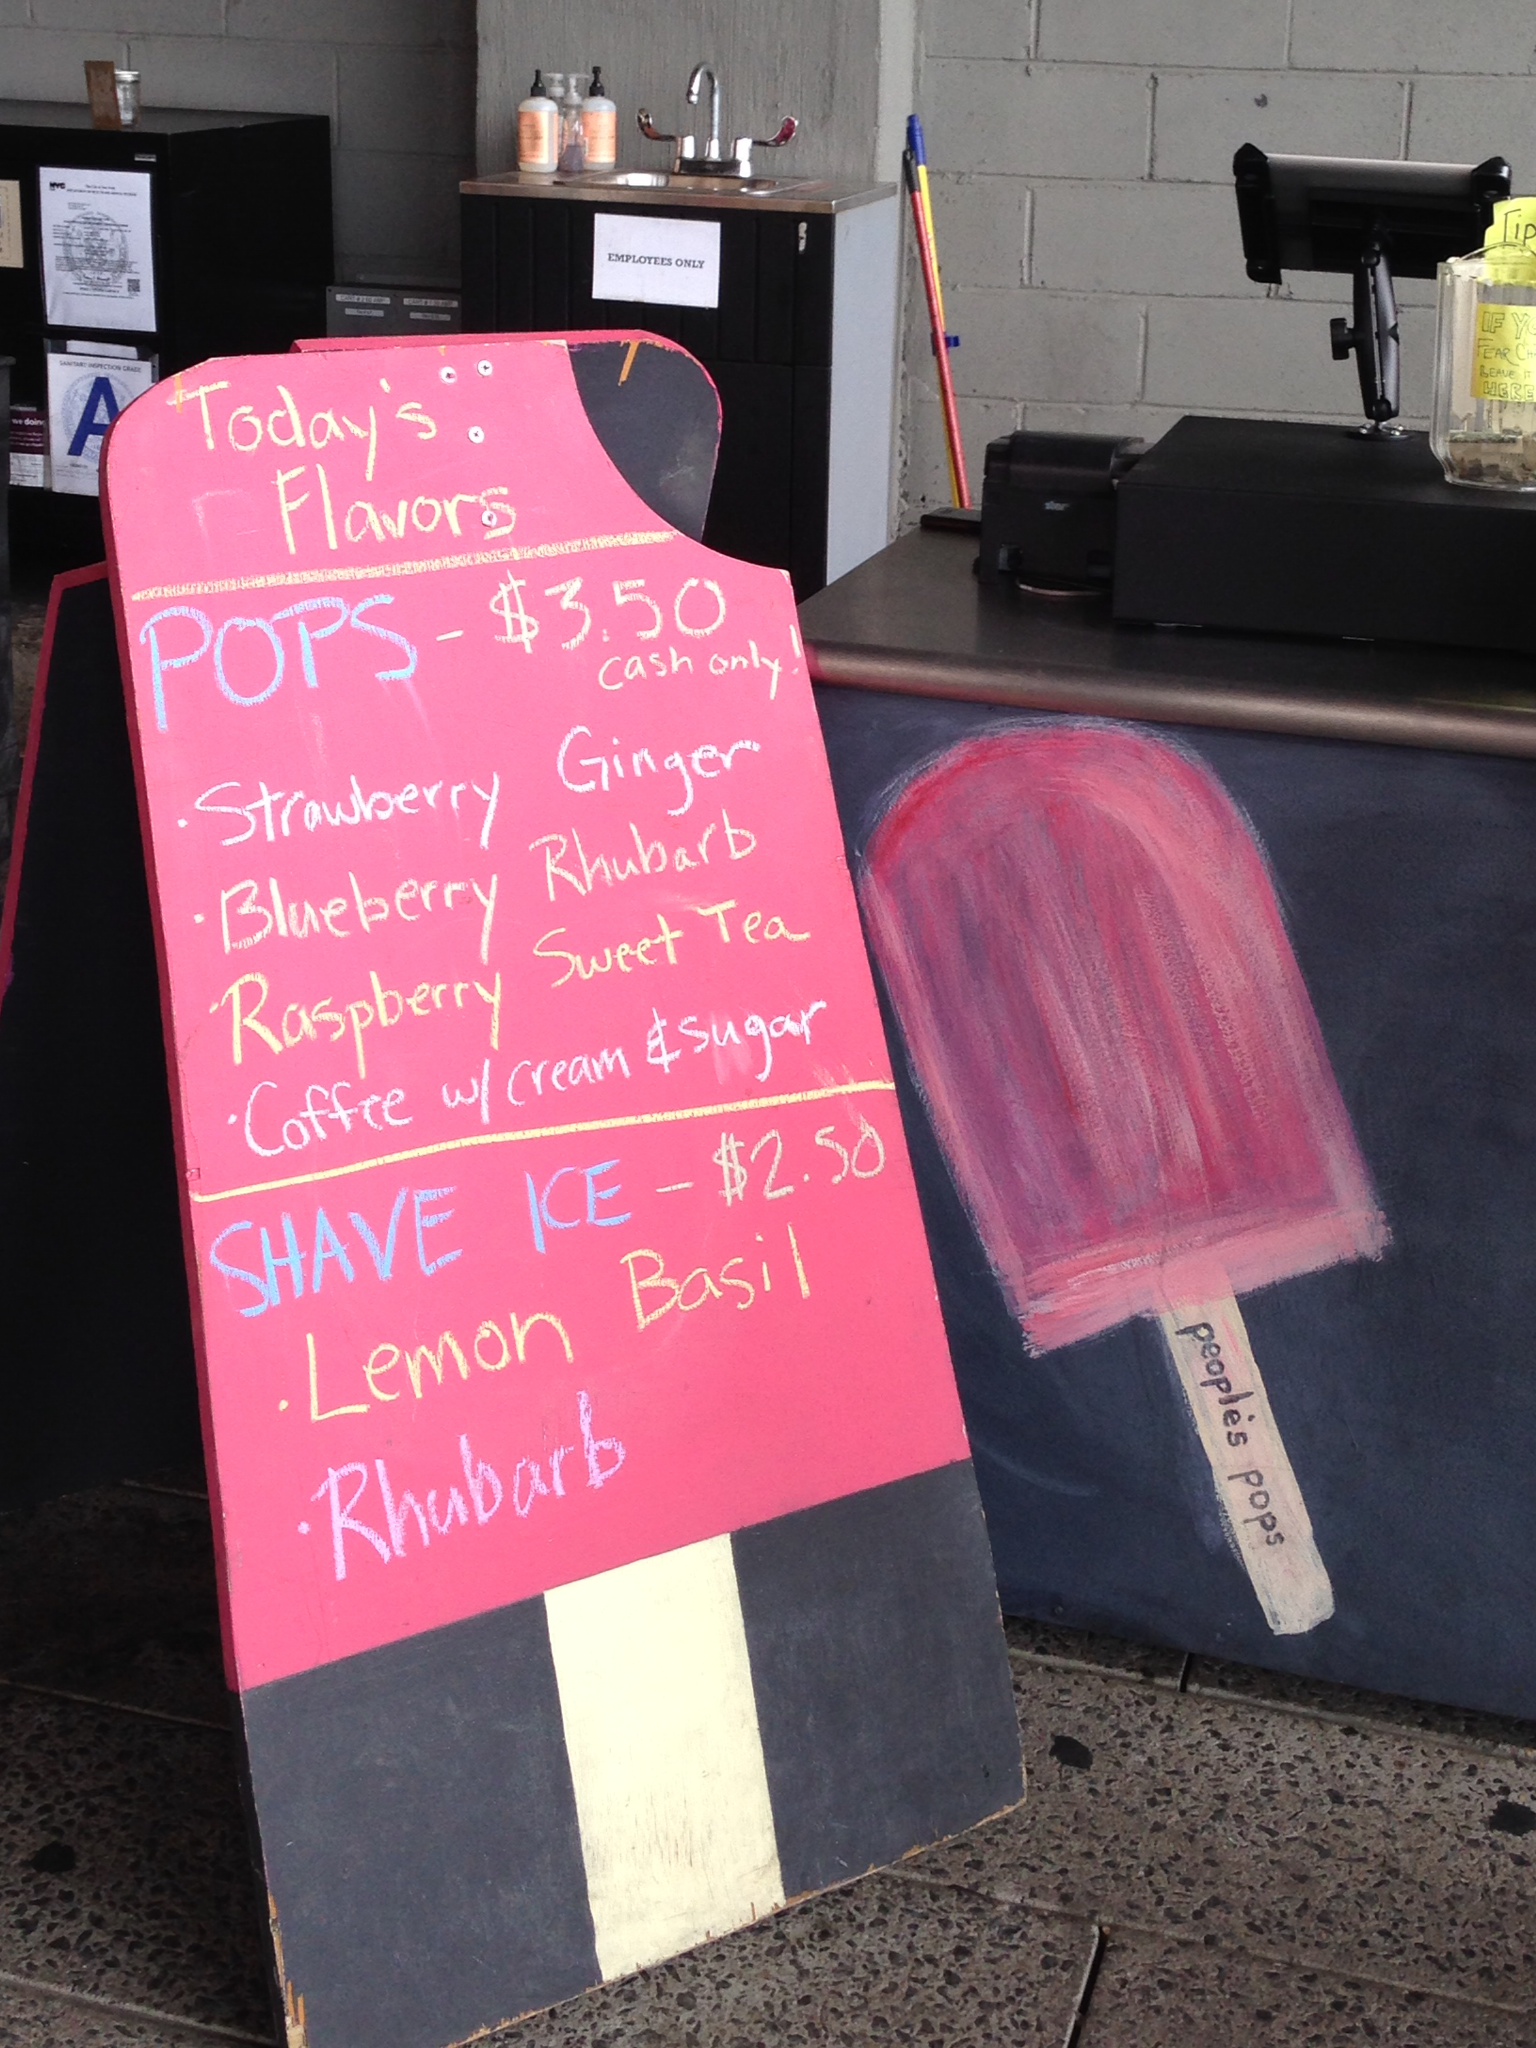 NYC
EMPLOYEES ONLY
SANITARY INSPECTION GRADE
A
we doin
Tip
IF Y
FEAR CH
LEAVE IT
HERE
star
Today's
Flavors
POPS - $3.50
cash only!
· Strawberry Ginger
· Blueberry Rhubarb
· Raspberry Sweet Tea
· Coffee w/ cream & sugar
SHAVE ICE - $2.50
· Lemon Basil
· Rhubarb
people's pops